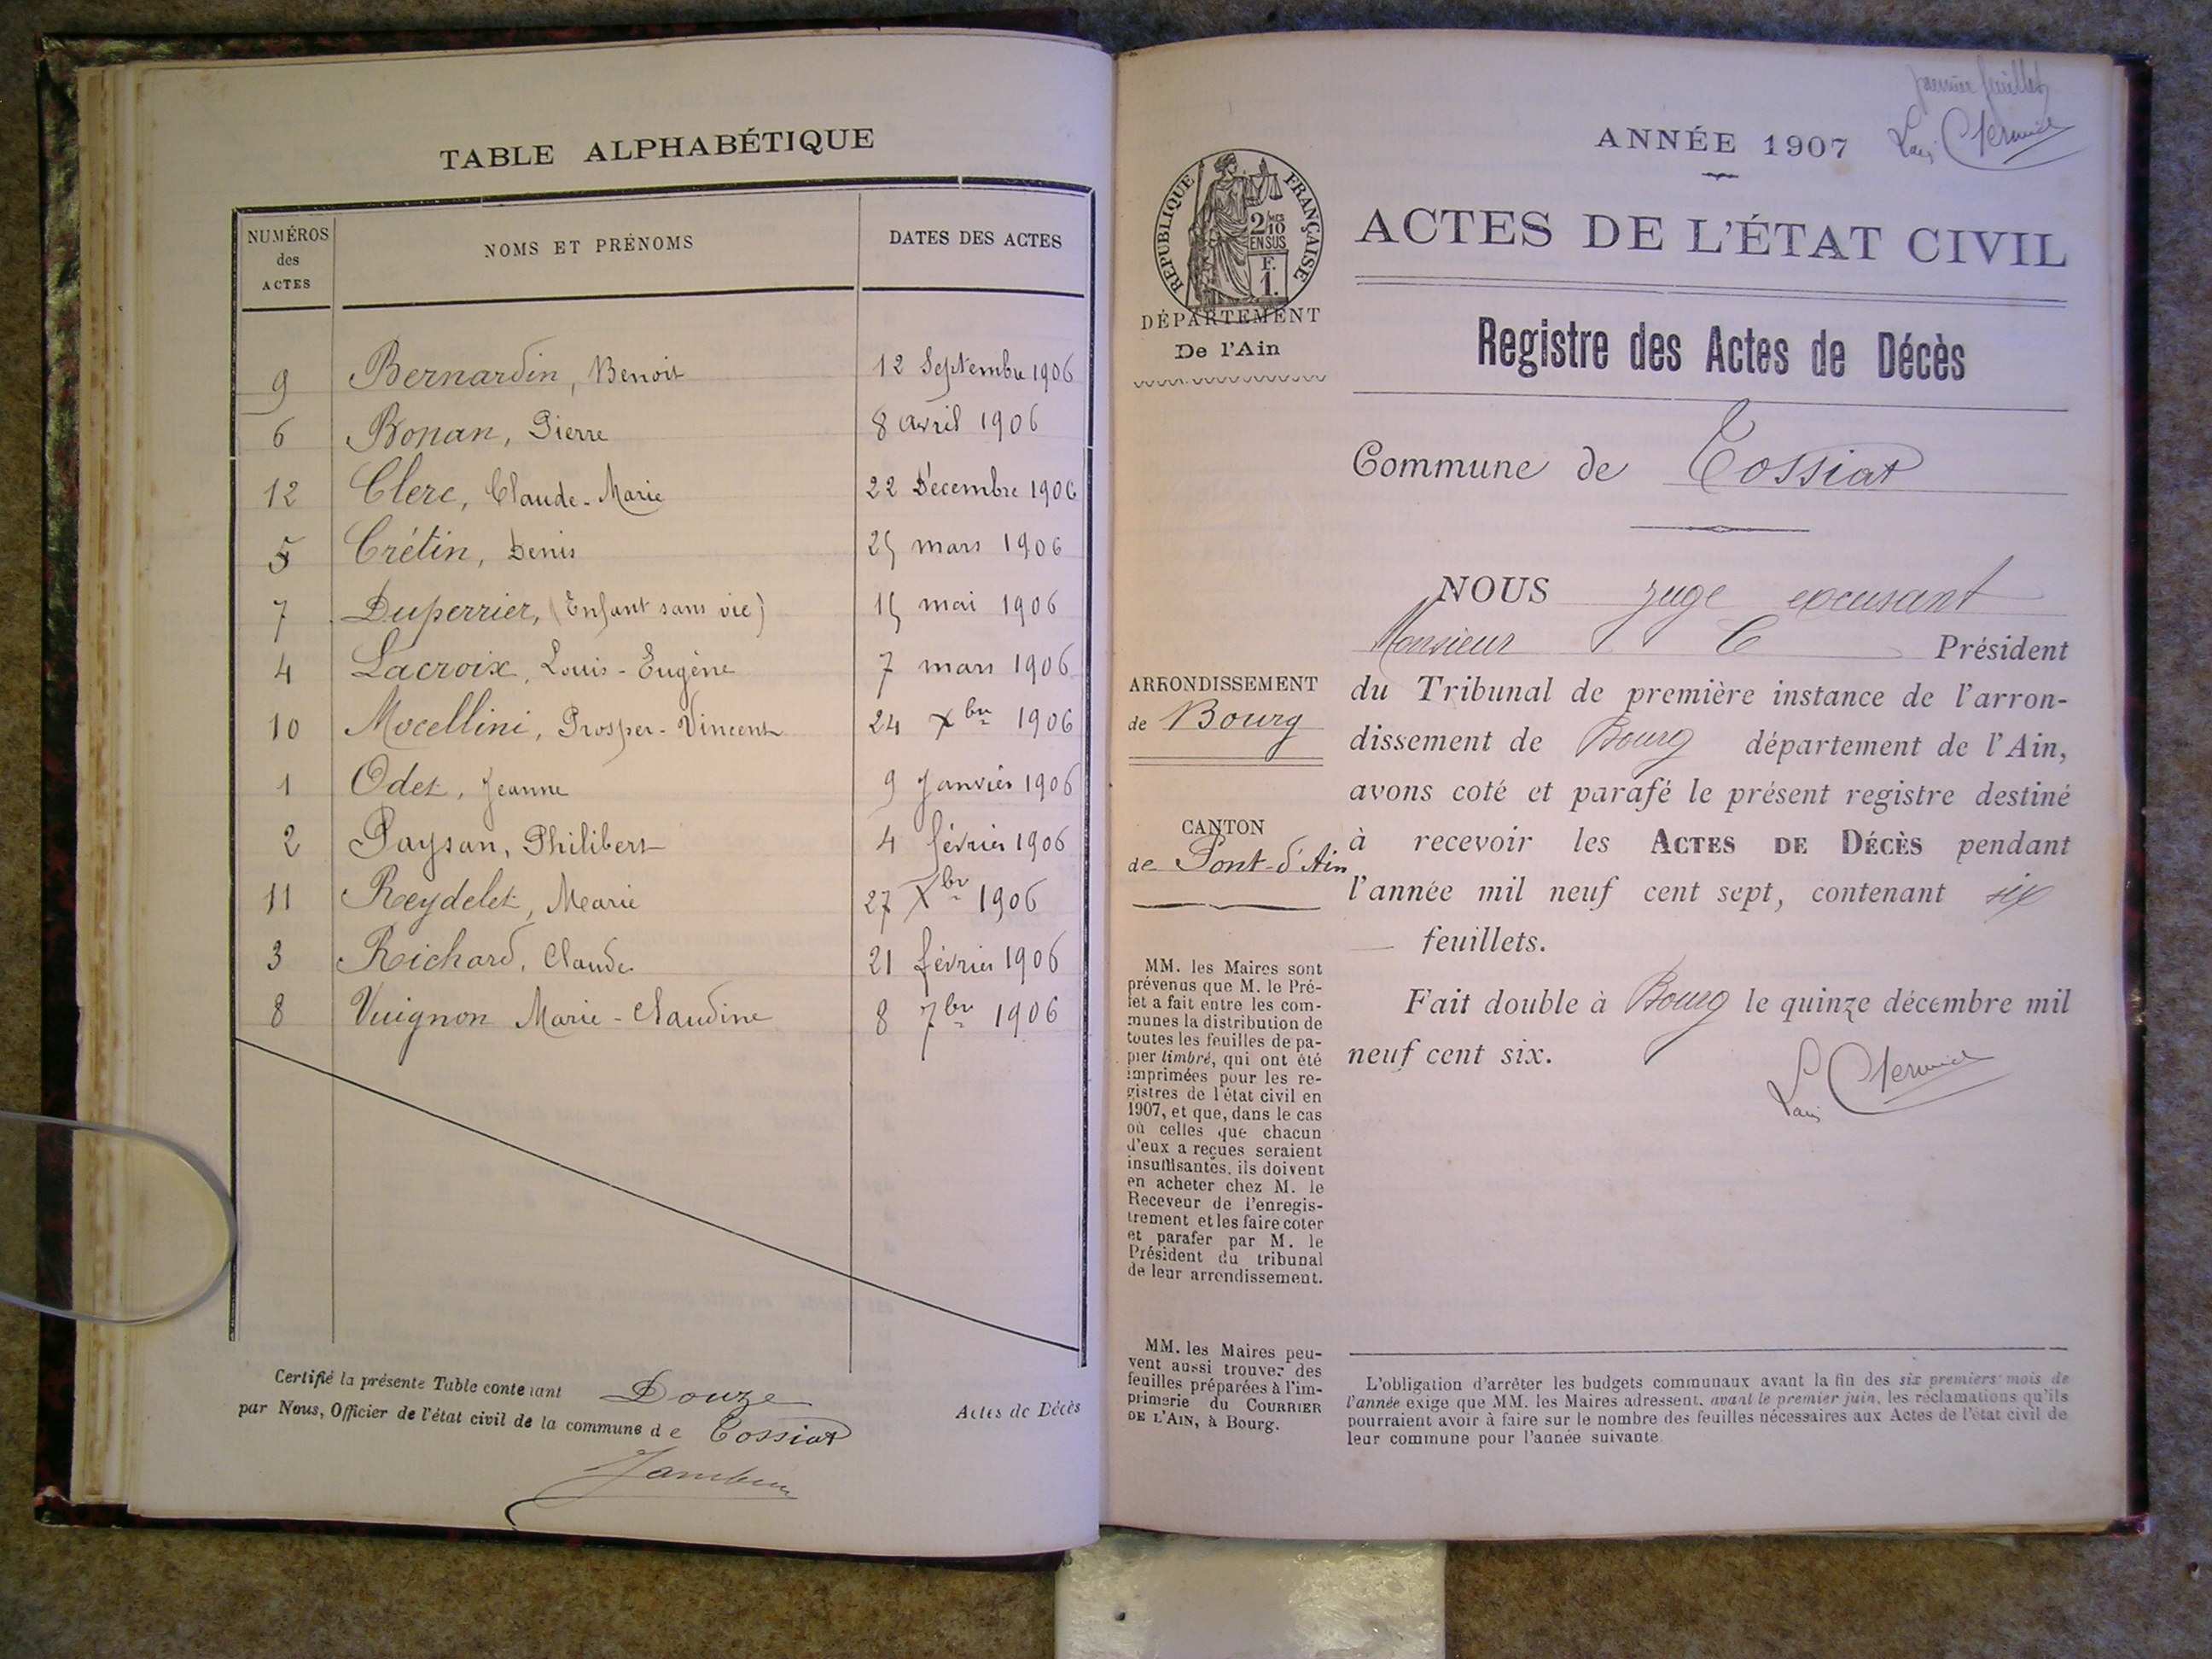 TABLE ALPHABÉTIQUE
NUMÉROS des ACTES | NOMS ET PRÉNOMS | DATES DES ACTES
9 Bernardin, Benoit 12 Septembre 1906
6 Bonan, Pierre 8 avril 1906
12 Clerc, Claude-Marie 22 Décembre 1906
5 Crétin, Denis 25 mars 1906
7 Duperrier, (Enfant sans vie) 15 mai 1906
4 Lacroix, Louis-Eugène 7 mars 1906
10 Mocellini, Prosper-Vincent 24 Xbre 1906
1 Odet, Jeanne 9 Janvier 1906
2 Paysan, Philibert 4 février 1906
11 Reydelet, Marie 27 Xbr 1906
3 Richard, Claude 21 février 1906
8 Vuignon Marie-Claudine 8 7br 1906
Certifié la présente Table contenant Douze
par Nous, Officier de l'état civil de la commune de Tossiat
Actes de Décès
premier feuillet
ANNÉE 1907
RÉPUBLIQUE FRANÇAISE
2/10 EN SUS
F. 1.
ACTES DE L'ÉTAT CIVIL
DÉPARTEMENT
De l'Ain
Registre des Actes de Décès
Commune de Tossiat
NOUS juge excusant
Monsieur le Président
du Tribunal de première instance de l'arron-
dissement de Bourg département de l'Ain,
avons coté et parafé le présent registre destiné
à recevoir les ACTES DE DÉCÈS pendant
l'année mil neuf cent sept, contenant six
feuillets.
Fait double à Bourg le quinze décembre mil
neuf cent six.
ARRONDISSEMENT
de Bourg
CANTON
de Pont-d'Ain
MM. les Maires sont
prévenus que M. le Pré-
fet a fait entre les com-
munes la distribution de
toutes les feuilles de pa-
pier timbré, qui ont été
imprimées pour les re-
gistres de l'état civil en
1907, et que, dans le cas
où celles que chacun
d'eux a reçues seraient
insuffisantes, ils doivent
en acheter chez M. le
Receveur de l'enregis-
trement et les faire coter
et parafer par M. le
Président du tribunal
de leur arrondissement.
MM. les Maires peu-
vent aussi trouver des
feuilles préparées à l'im-
primerie du COURRIER
DE L'AIN, à Bourg.
L'obligation d'arrêter les budgets communaux avant la fin des six premiers mois de
l'année exige que MM. les Maires adressent, avant le premier juin, les réclamations qu'ils
pourraient avoir à faire sur le nombre des feuilles nécessaires aux Actes de l'état civil de
leur commune pour l'année suivante.